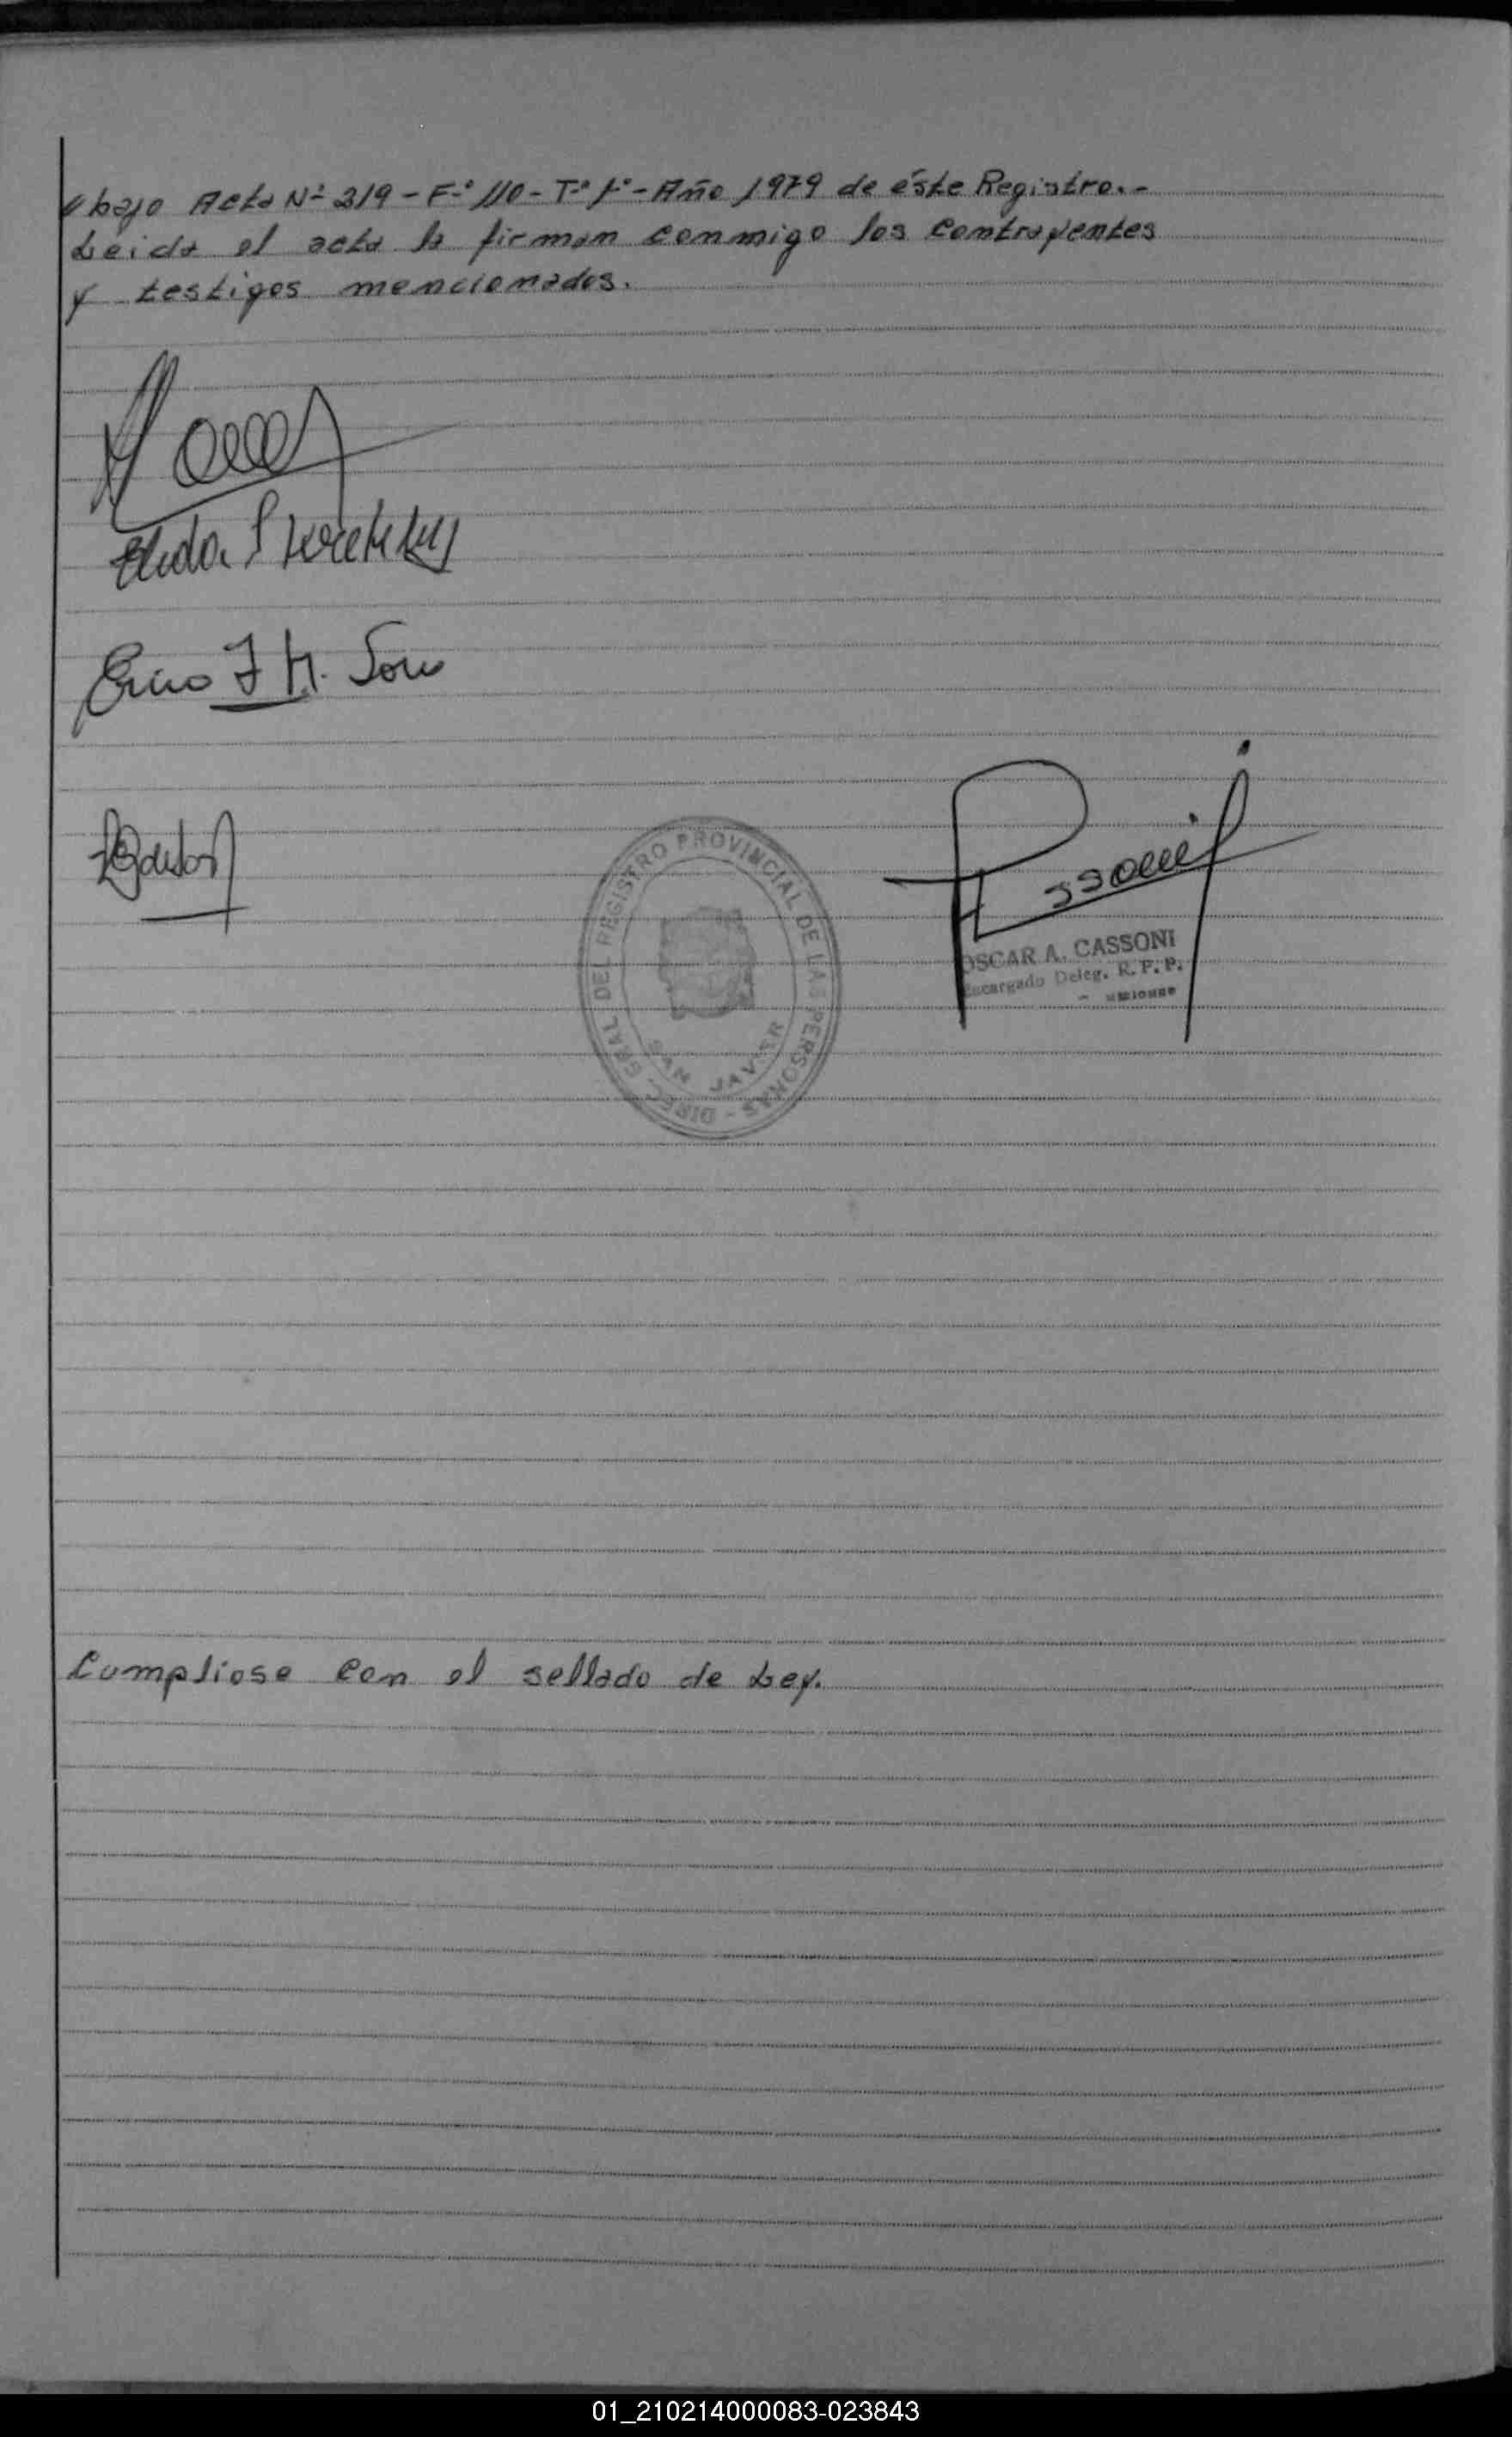 bajo Acta Nº 319 - Fº 110 - Tº 1º - Año 1979 de éste Registro.-
Leida el acta la firman conmigo los contrayentes
y testigos mencionados.
DIREC. GRAL DEL REGISTRO PROVINCIAL DE LAS PERSONAS -
SAN JAVIER
OSCAR A. CASSONI
Encargado Deleg. R. P. P.
Cumpliose con el sellado de Ley.
01_210214000083-023843